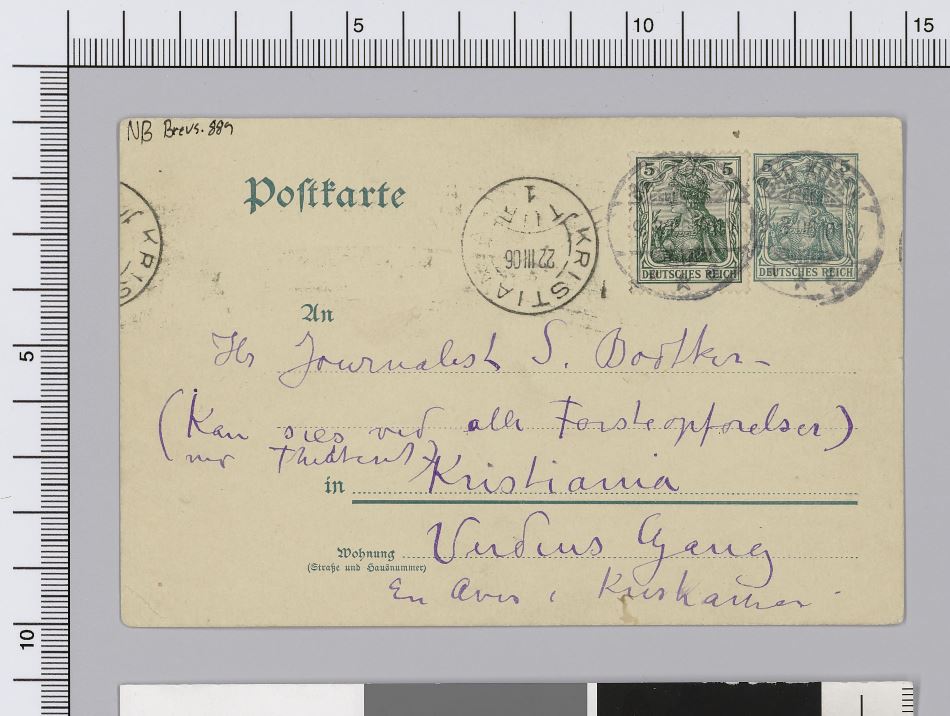 NB Brevs. 889
Postkarte
5 5
5 5
DEUTSCHES REICH
DEUTSCHES REICH
KRISTIANIA
1
22 III 06
KRIS
An
Hr Journalist S. Bødtker
(Kan sies ved alle Førsteopførelser)
Theatret)
in Kristiania
Verdens Gang
Wohnung
(Straße und Hausnummer)
En Avis i Kristiania
5
10
15
5
10